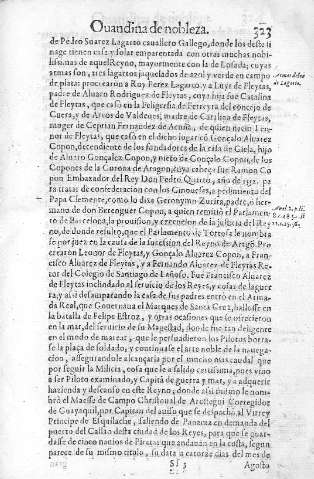 Quandina de nobleza. 323
de Pedro Suarez Lagarto cauallero Gallego, donde los deste li
nage tienen casa y solar emparentada con otras muchas nobi-
lissimas de aquel Reyno, mayormente con la de Losada; cuyas
armas son, tres lagartos jaquelados de azul y verde en campo
de plata: procrearon a Roy Perez Lagarto, y a Luys de Fleytas,
padre de Aluaro Rodriguez de Fleytas, cuya hija fue Catalina
de Fleytas, que casò en la Feligresia de Ferreyra del concejo de
Cuera, y de Arcos de Valdeuez, madre de Catalina de Fleytas,
muger de Ceprian Fernandez de Araujo, de quien nacio Leo-
nor de Fleytas, que casò en el dicho lugar cõ Gonçalo Aluarez
Copon, decendiente de los fundadores de la casa de Ciela, hijo
de Aluaro Gonçalez Copon, y nieto de Gonçalo Copon, de los
Copones de la Corona de Aragon, cuya cabeça fue Ramon Co
pon Embaxador del Rey Don Pedro Quarto, año de 1352. pa
ra tratar de confederacion con los Ginoueses, a pedimiento del
Papa Clemente, como lo dize Geronymo Zurita, padre, o her
mano de don Berenguer Copon, a quien remitio el Parlamen-
to de Barcelona, la prouision, y execucion de la justicia del Rey
no, de donde resultò, que el Parlamento de Tortosa le nombra
se por juez en la causa de la sucession del Reyno de Aragõ. Pro
crearon Leonor de Fleytas, y Gonçalo Aluarez Copon, a Fran-
cisco Aluarez de Fleytas, y a Fernando Aluarez de Fleytas Re
tor del Colegio de Santiago de
de Fleytas inclinado al seruicio de los Reyes, y cosas de la guer
ra, y assi desamparando la casa de sus padres entrò en el Arma-
da Real, que gouernaua el Marques de Santa Cruz, hallose en
la batalla de Felipe Estroz, y otras ocasiones que se ofrecieron
en la mar, del seruicio de su Magestad, donde fue tan deligente
en el modo de marear, que le persuadieron los Pilotos borras-
se la plaça de soldado, y continuasse el arte noble de la nauega-
cion, assegurandole alcançaria por el mucho mas caudal que
por seguir la Milicia, cosa que le a salido certissima, pues vino
a ser Piloto examinado, y Capitã de guerra y mar, y a adquerir
hazienda y descanso en este Reyno, donde assi mismo le nom-
brò el Maesse de Campo Christoual de Arostegui Corregidor
de Guayaquil, por Capitan del auiso que se despachò al Virrey
Principe de Esquilache, saliendo de Panama en demanda del
puerto del Callao desta ciudad de los Reyes, para que se guar-
dasse de cinco nauios de Piratas que andauan en la costa, segun
parece de su mismo titulo, su data a catorze dias del mes de
Sf 3 Agosto